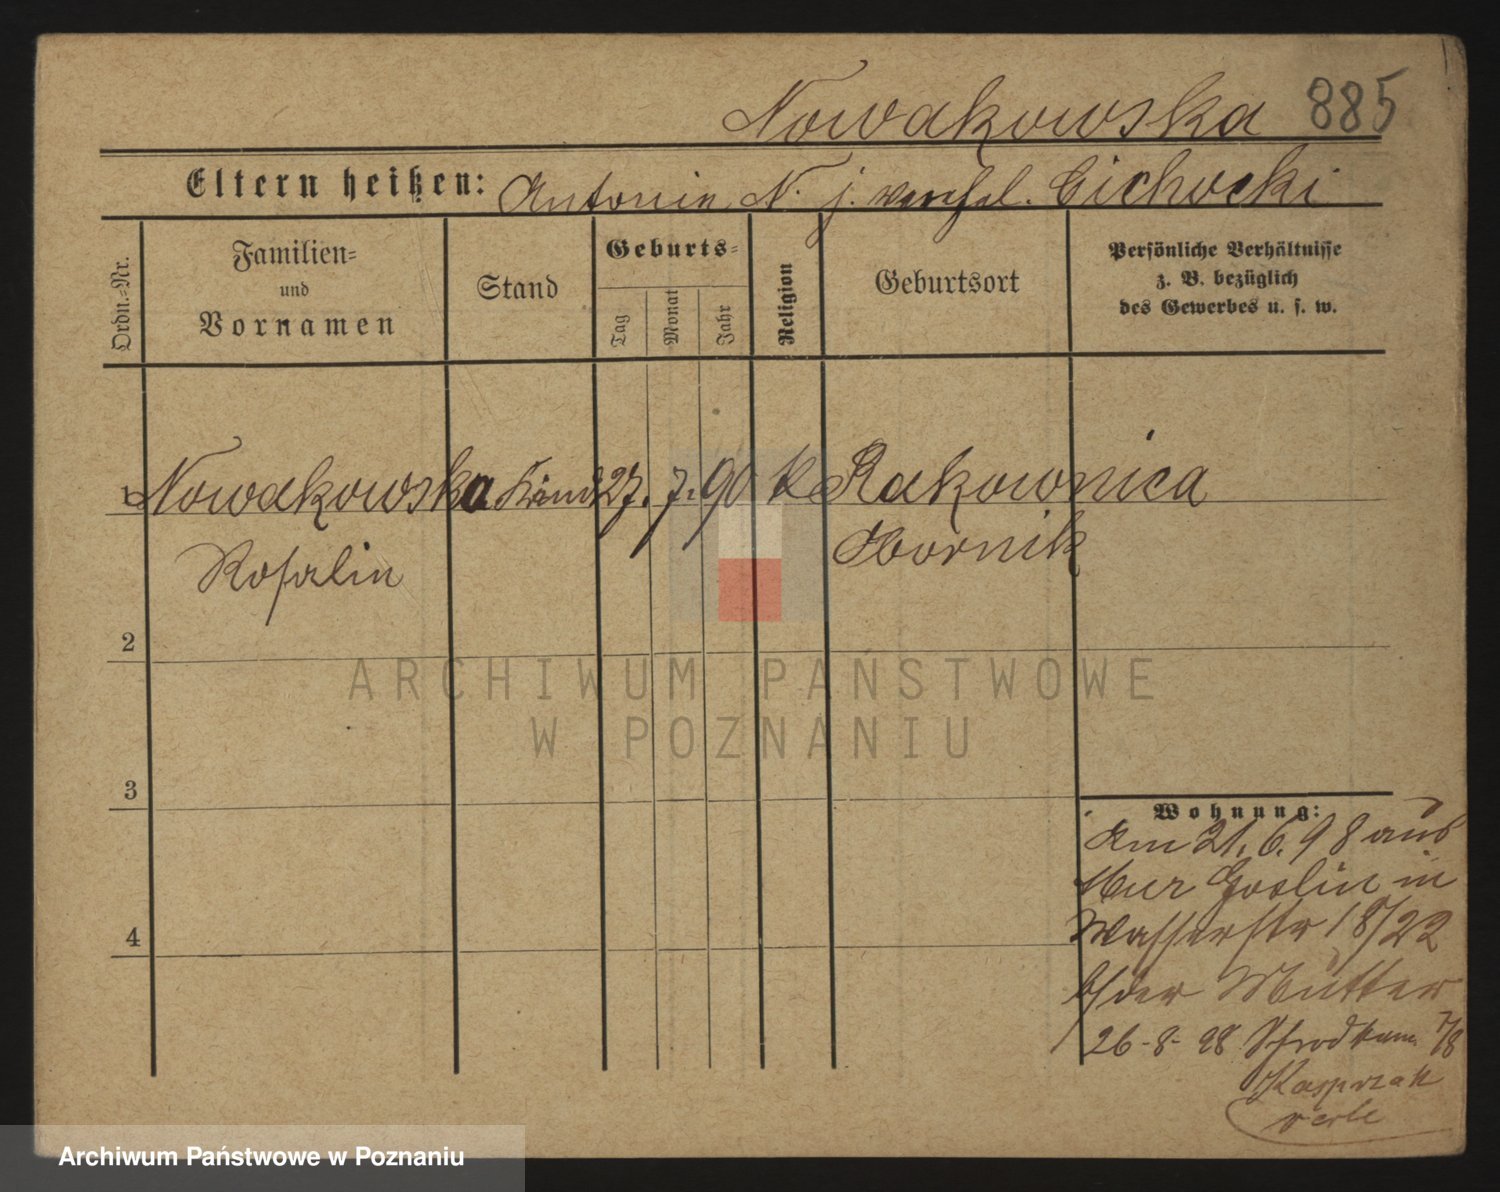 Nowakowska 885
Eltern heißen: Antonie N. j. verehel. Cichocki
Ordn.-Nr.
Familien-
und
Vornamen
Stand
Geburts-
Tag
Monat
Jahr
Religion
Geburtsort
Persönliche Verhältnisse
z. B. bezüglich
des Gewerbes u. s. w.
1 Nowakowska Kind 27. 7. 90 k Rakownica
Rosalie
Obornik
2
3
4
Wohnung:
Am 21. 6. 98 aus
Mur Goslin in
Wasserstr 18/22
b/der Mutter
26-8-98 Schrodkam. 7/8
Kasprzak
ARCHIWUM PAŃSTWOWE
W POZNANIU
Archiwum Państwowe w Poznaniu